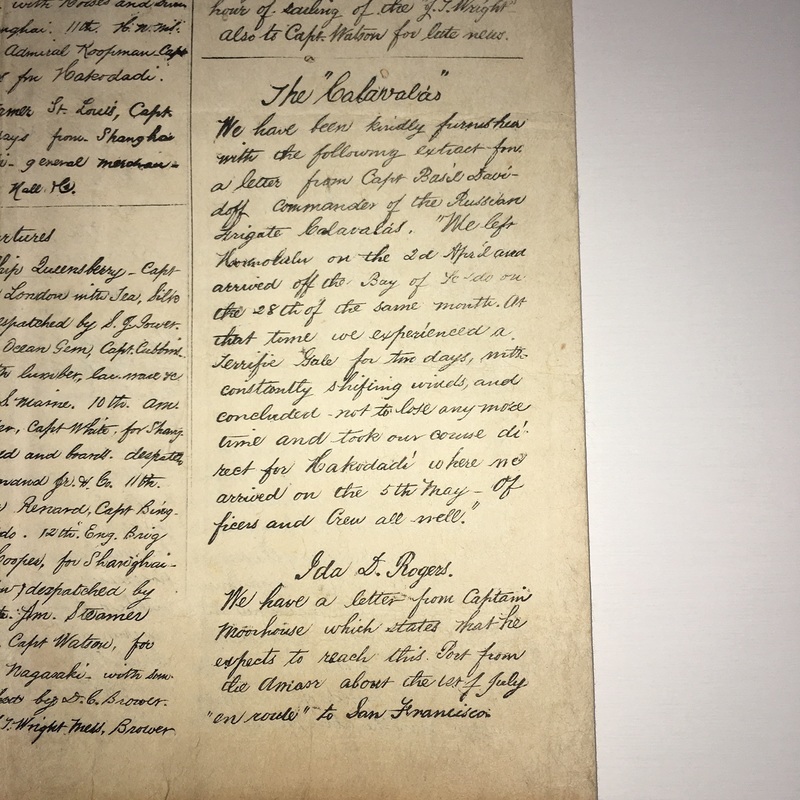 with Horses and
nghai. 11th. H.N.M.
Admiral Koopman Capt
fm Hakodadi.
amer St. Louis, Capt.
ays from Shangha
i - general merchan-
Hall &C.
rtures
hip Queensberry - Capt
London with Tea, Silk
espatched by S. J. Gower.
Ocean Gem, Capt. Cubbins.
h lumber,
10th. Am.
er, Capt White. for Shang
ed and board. despatch
and Jr. & Co. 11th.
Renard, Capt Bing-
do. 12th. Eng. Brig
Cooper, for Shanghai-
despatched by
Am. Steamer
Capt Watson, for
Nagasaki - with sun-
by D. C. Brower.
J. Wright, Mess, Brower
hour of sailing of the "J. T. Wright"
also to Capt. Watson for late news.
The "Calavalás"
We have been kindly furnished
with the following extract fm.
a letter from Capt Basil Davi-
doff commander of the Russian
Frigate Calavalás. "We left
Honolulu on the 2d April and
arrived off the Bay of Yedo on
the 28th of the same month. At
that time we experienced a
Terrific Gale for two days, with
constantly shifting winds, and
concluded not to lose any more
time and took our course di-
rect for Hakodadi where we
arrived on the 5th May - Of
ficers and Crew all well."
Ida D. Rogers.
We have a letter from Captain
Moorhouse which states that he
expects to reach this Port from
the Amoor about the 1st of July
"en route" to San Francisco